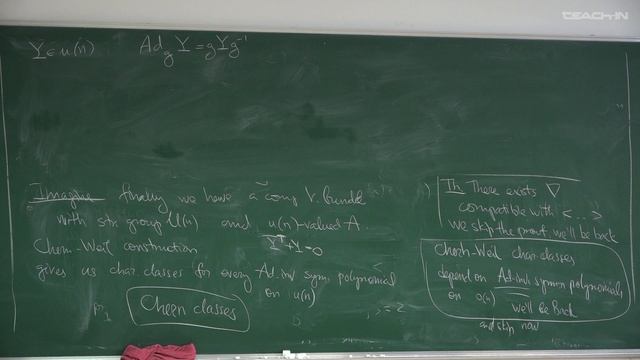 TEACH-IN
Y ∈ u(n) Ad_g Y = gYg⁻¹
Imagine finally we have a comp V. bundle
with str group U(n) and u(n)-valued A.
Chern-Weil construction Y̅ᵀ+Y=0
gives us char. classes for every Ad-inv sym. polynomial
on u(n)
Chern classes
Th There exists ∇
compatible with <..>
we skip the proof we'll be back
Chern-Weil char classes
depend on Ad-inv symm polynomials
on o(n) we'll be Back
and skip now